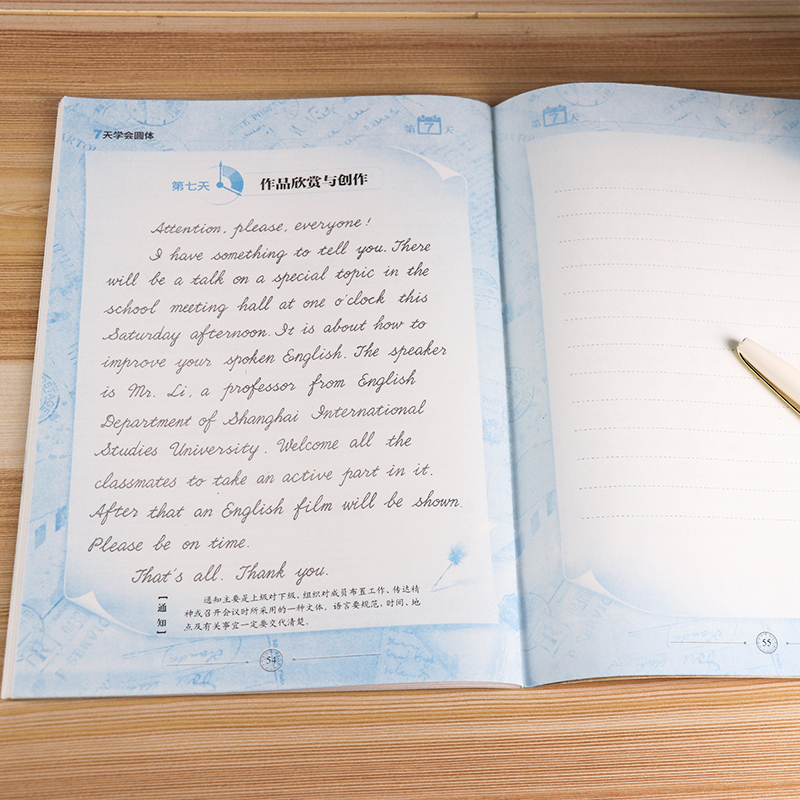 7天学会圆体
第7天
第七天
作品欣赏与创作
Attention, please, everyone!
I have something to tell you. There
will be a talk on a special topic in the
school meeting hall at one o'clock this
Saturday afternoon. It is about how to
improve your spoken English. The speaker
is Mr. Li, a professor from English
Department of Shanghai International
Studies University. Welcome all the
classmates to take an active part in it.
After that an English film will be shown.
Please be on time.
That's all. Thank you.
【通知】
通知主要是上级对下级、组织对成员布置工作、传达精
神或召开会议时所采用的一种文体。语言要规范,时间、地
点及有关事宜一定要交代清楚。
54
第7天
55